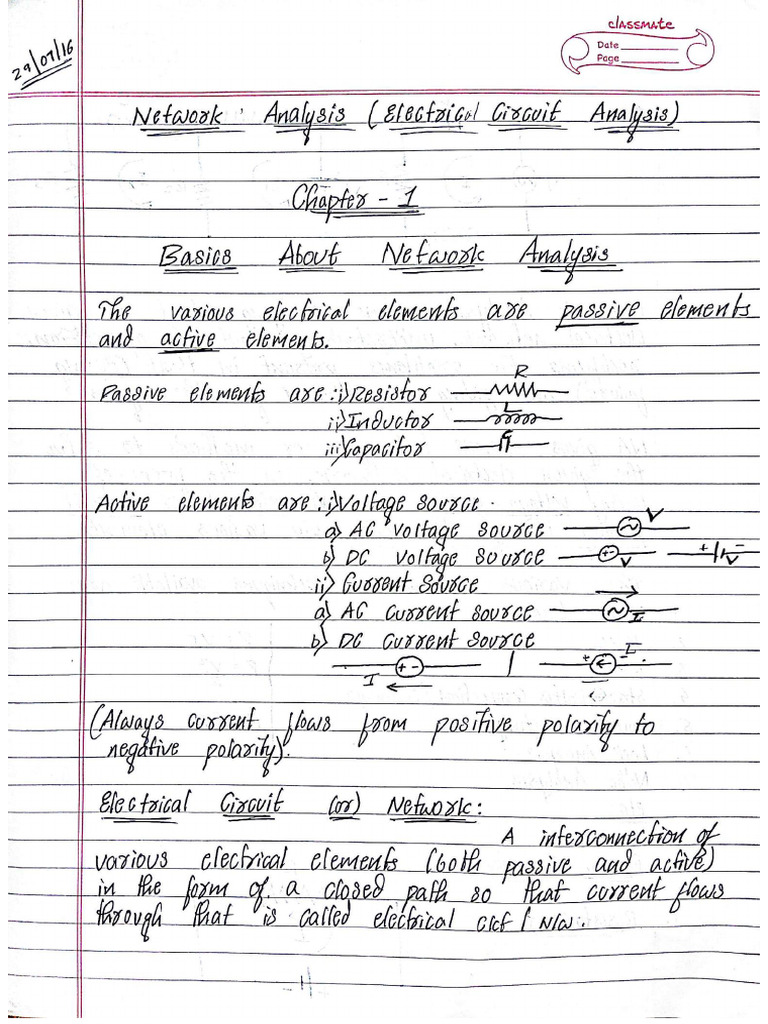 classmate
Date
Page
29/07/16
Network Analysis (Electrical Circuit Analysis)
Chapter - 1
Basics About Network Analysis
The various electrical elements are passive elements
and active elements.
R
Passive elements are: i) Resistor
L
ii) Inductor
C
iii) Capacitor
Active elements are: i) Voltage source.
a) AC voltage source V
b) DC voltage source + - V + - V
ii) Current Source
a) AC current source I
b) DC current source
I + - + - I
(Always current flows from positive polarity to
negative polarity).
Electrical Circuit (or) Network:
A interconnection of
various electrical elements (both passive and active)
in the form of a closed path so that current flows
through that is called electrical ckt / N/W.